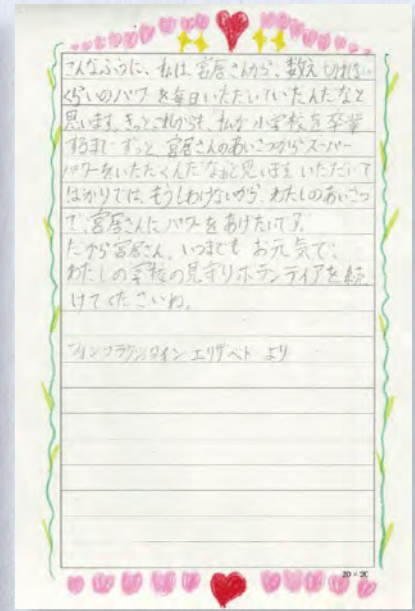 こんなふうに、私は宮居さんから、数えきれない
くらいのパワーを毎日いただいていたんだなと
思います。きっとこれからも、私が小学校を卒業
するまでずっと、宮居さんのあいさつからスーパー
パワーをいただくんだなあと思います。いただいて
ばかりでは、もうしわけないから、わたしのあいさつ
で、宮居さんにパワーをあげたいです。
だから宮居さん、いつまでもお元気で、
わたしの学校の見守りボランティアを続
けてくださいね。
エリザベト より
20×20